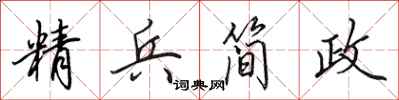 精兵简政
词典网